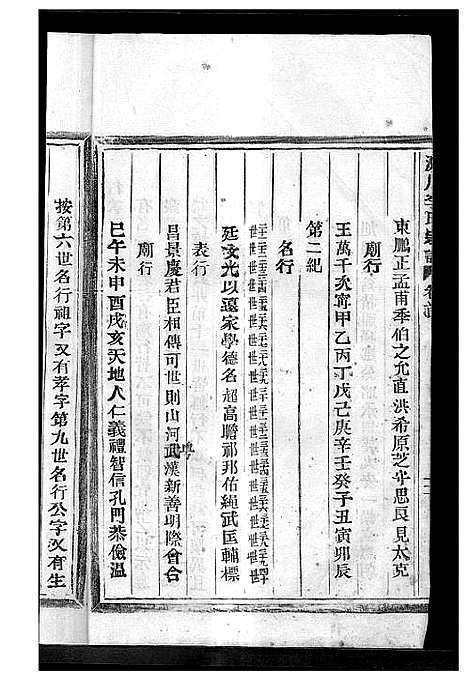 東鵬正孟甫季伯之允直洪希原芝亨思良見太克
廟行
王萬千次宵甲乙丙丁戊己庚辛壬癸子丑寅卯辰
第二紀
名行
廷文光以遠家學德名超高瞻祁邦佑繩武匡輔標
表行
昌景慶君臣相傳可世則山河武漢新善明際會合
廟行
巳午未申酉戌亥天地人仁義禮智信孔門恭儉溫
按第六世名行祖字又有孝字第九世名行公字又有生